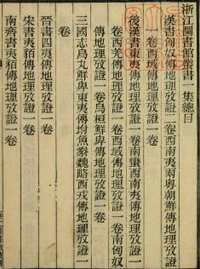 浙江圖書館叢書一集總目
漢書匈奴傳地理攷證二卷西南夷兩粵朝鮮傳地理攷證
一卷西域傳地理攷證一卷
後漢書東夷傳地理攷證一卷南蠻西南夷傳地理攷證一
卷西羌傳地理攷證一卷西域傳地理攷證一卷南匈奴
傳地理攷證一卷烏桓鮮卑傳地理攷證一卷
三國志烏丸鮮卑東夷傳附魚豢魏略西戎傳地理攷證一
卷
晉書四夷傳地理攷證一卷
宋書夷貊傳地理攷證一卷
南齊書夷貊傳地理攷證一卷